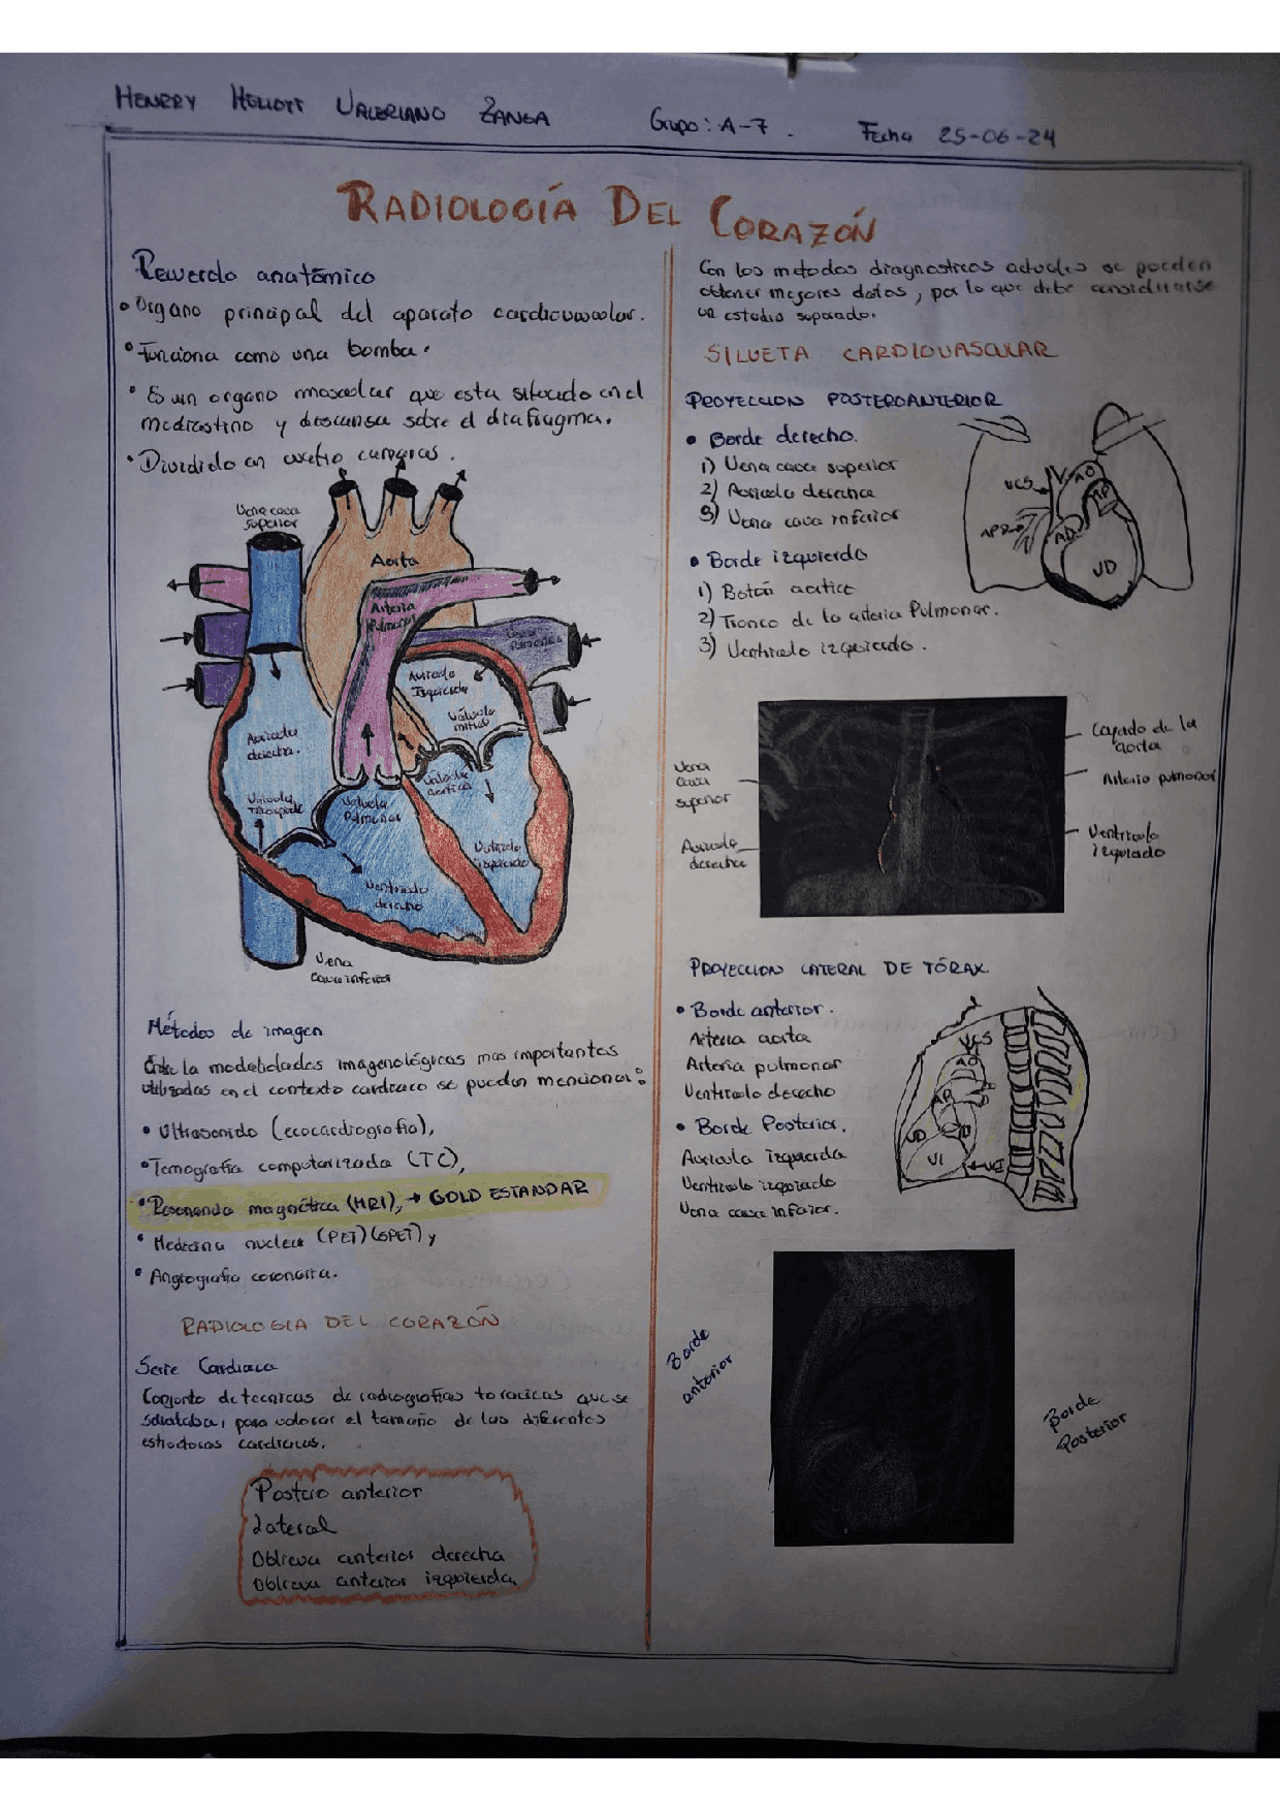 HENRRY HELIOTT VALERIANO ZANGA Grupo: A-7. Fecha 25-06-24
RADIOLOGÍA DEL CORAZÓN
Recuerdo anatómico
• Organo principal del aparato cardiovascular.
• Funciona como una bomba.
• Es un organo muscular que esta situado en el
mediastino y descansa sobre el diafragma.
• Dividido en cuatro camaras.
Vena cava
superior
Aorta
Arteria
Pulmonar
Venas
Pulmonares
Auricula
Izquierda
Válvula
mitral
Auricula
derecha.
Válvula
aortica
Válvula
Tricuspide
Válvula
Pulmonar
Ventriculo
izquierdo
Ventriculo
derecho
Vena
cava inferior
Métodos de imagen
Entre la modalidades imagenológicas mas importantes
utilizadas en el contexto cardiaco se pueden mencionar:
• Ultrasonido (ecocardiografia),
• Tomografía computarizada (TC),
• Resonancia magnética (MRI), → GOLD ESTANDAR
• Medicina nuclear (PET) (SPET) y
• Angiografia coronaria.
RADIOLOGIA DEL CORAZÓN
Serie Cardiaca
Conjunto de tecnicas de radiografias toracicas que se
solicitaba, para valorar el tamaño de las diferentes
estructuras cardiacas.
Postero anterior
Lateral
Oblicua anterior derecha
Oblicua anterior izquierda
Con los metodos diagnosticos actuales se pueden
obtener mejores datos, por lo que debe considerarse
un estudio superado.
SILUETA CARDIOVASCULAR
PROYECCION POSTEROANTERIOR
• Borde derecho.
1) Vena cava superior
2) Auricula derecha
3) Vena cava inferior
• Borde izquierdo
1) Botón aortico
2) Tronco de la arteria Pulmonar.
3) Ventriculo izquierdo.
VCS
AO
AP
APD
AD
VD
Vena
cava
superior
Auricula
derecha
Cayado de la
aorta
Arteria pulmonar
Ventriculo
izquierdo
PROYECCION LATERAL DE TÓRAX.
• Borde anterior.
Arteria aorta
Arteria pulmonar
Ventriculo derecho
• Borde Posterior.
Auricula izquierda
Ventriculo izquierdo
Vena cava inferior.
VCS
AO
AP
VD
VI
VCI
Borde
anterior
Borde
Posterior